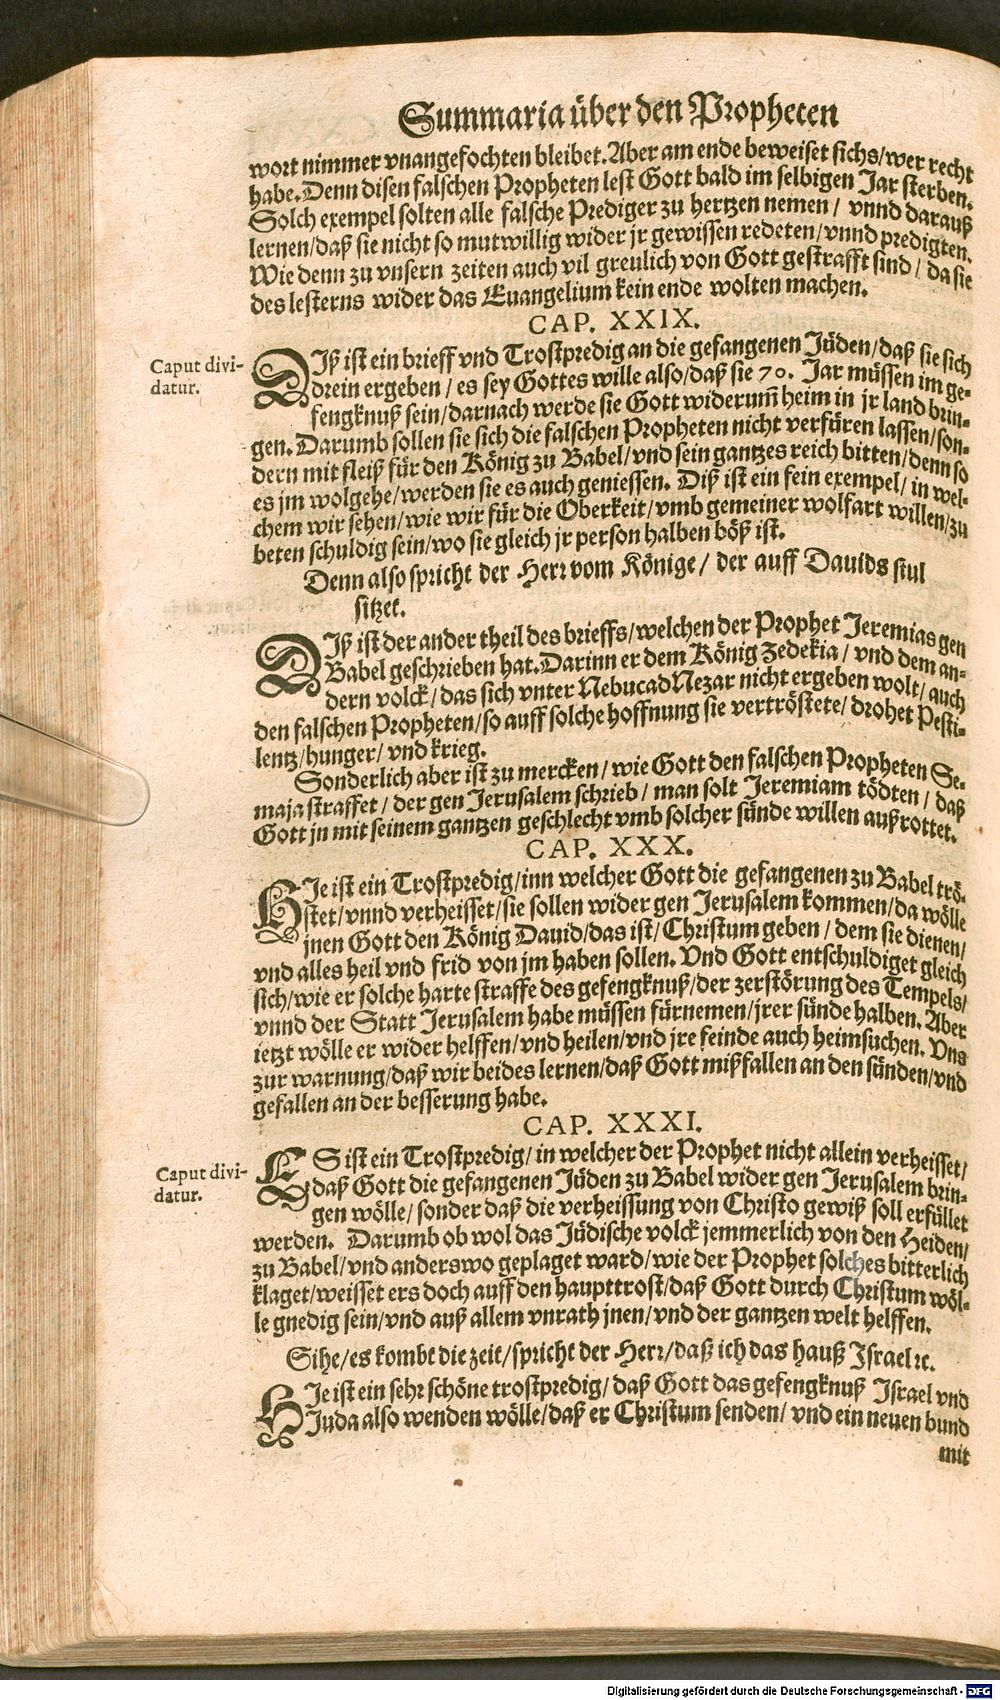 Summaria über den Propheten
wort nimmer vnangefochten bleibet. Aber am ende beweiset sichs/wer recht
habe. Denn disen falschen Propheten lest Gott bald im selbigen Jar sterben.
Solch exempel solten alle falsche Prediger zu hertzen nemen/ vnnd darauß
lernen/daß sie nicht so mutwillig wider jr gewissen redeten/vnnd predigten.
Wie denn zu vnsern zeiten auch vil greulich von Gott gestrafft sind/ da sie
des lesterns wider das Euangelium kein ende wolten machen.
CAP. XXIX.
Caput divi-
datur.
DIß ist ein brieff vnd Trostpredig an die gefangenen Jüden/daß sie sich
drein ergeben/ es sey Gottes wille also/daß sie 70. Jar müssen im ge-
fengknuß sein/darnach werde sie Gott widerum̃ heim in jr land brin-
gen. Darumb sollen sie sich die falschen Propheten nicht verfüren lassen/son-
dern mit fleiß für den König zu Babel/vnd sein gantzes reich bitten/denn so
es jm wolgehe/werden sie es auch geniessen. Diß ist ein fein exempel/ in wel-
chem wir sehen/wie wir für die Oberkeit/vmb gemeiner wolfart willen/zu
beten schuldig sein/wo sie gleich jr person halben böß ist.
Denn also spricht der Herr vom Könige/ der auff Dauids stul
sitzet.
DIß ist der ander theil des brieffs/welchen der Prophet Jeremias gen
Babel geschrieben hat. Darinn er dem König Zedekia/ vnd dem an-
dern volck/das sich vnter NebucadNezar nicht ergeben wolt/ auch
den falschen Propheten/so auff solche hoffnung sie vertröstete/ drohet Pesti-
lentz/hunger/ vnd krieg.
Sonderlich aber ist zu mercken/ wie Gott den falschen Propheten Se-
maja straffet/ der gen Jerusalem schrieb/ man solt Jeremiam tödten/ daß
Gott jn mit seinem gantzen geschlecht vmb solcher sünde willen außrottet.
CAP. XXX.
HIe ist ein Trostpredig/inn welcher Gott die gefangenen zu Babel trö-
stet/vnnd verheisset/sie sollen wider gen Jerusalem kommen/da wölle
jnen Gott den König Dauid/das ist/ Christum geben/ dem sie dienen/
vnd alles heil vnd frid von jm haben sollen. Vnd Gott entschuldiget gleich
sich/wie er solche harte straffe des gefengknuß/der zerstörung des Tempels/
vnnd der Statt Jerusalem habe müssen fürnemen/jrer sünde halben. Aber
ietzt wölle er wider helffen/vnd heilen/vnd jre feinde auch heimsuchen. Vns
zur warnung/daß wir beides lernen/daß Gott mißfallen an den sünden/vnd
gefallen an der besserung habe.
CAP. XXXI.
Caput divi-
datur.
ES ist ein Trostpredig/ in welcher der Prophet nicht allein verheisset/
daß Gott die gefangenen Jüden zu Babel wider gen Jerusalem brin-
gen wölle/ sonder daß die verheissung von Christo gewiß soll erfüllet
werden. Darumb ob wol das Jüdische volck jemmerlich von den Heiden/
zu Babel/vnd anderswo geplaget ward/wie der Prophet solches bitterlich
klaget/weisset ers doch auff den haupttrost/daß Gott durch Christum wöl-
le gnedig sein/vnd auß allem vnrath jnen/vnd der gantzen welt helffen.
Sihe/es kombt die zeit/spricht der Herr/daß ich das hauß Israel ꝛc.
HIe ist ein sehr schöne trostpredig/ daß Gott das gefengknuß Israel vnd
Juda also wenden wölle/daß er Christum senden/ vnd ein neuen bund
mit
Digitalisierung gefördert durch die Deutsche Forschungsgemeinschaft - DFG